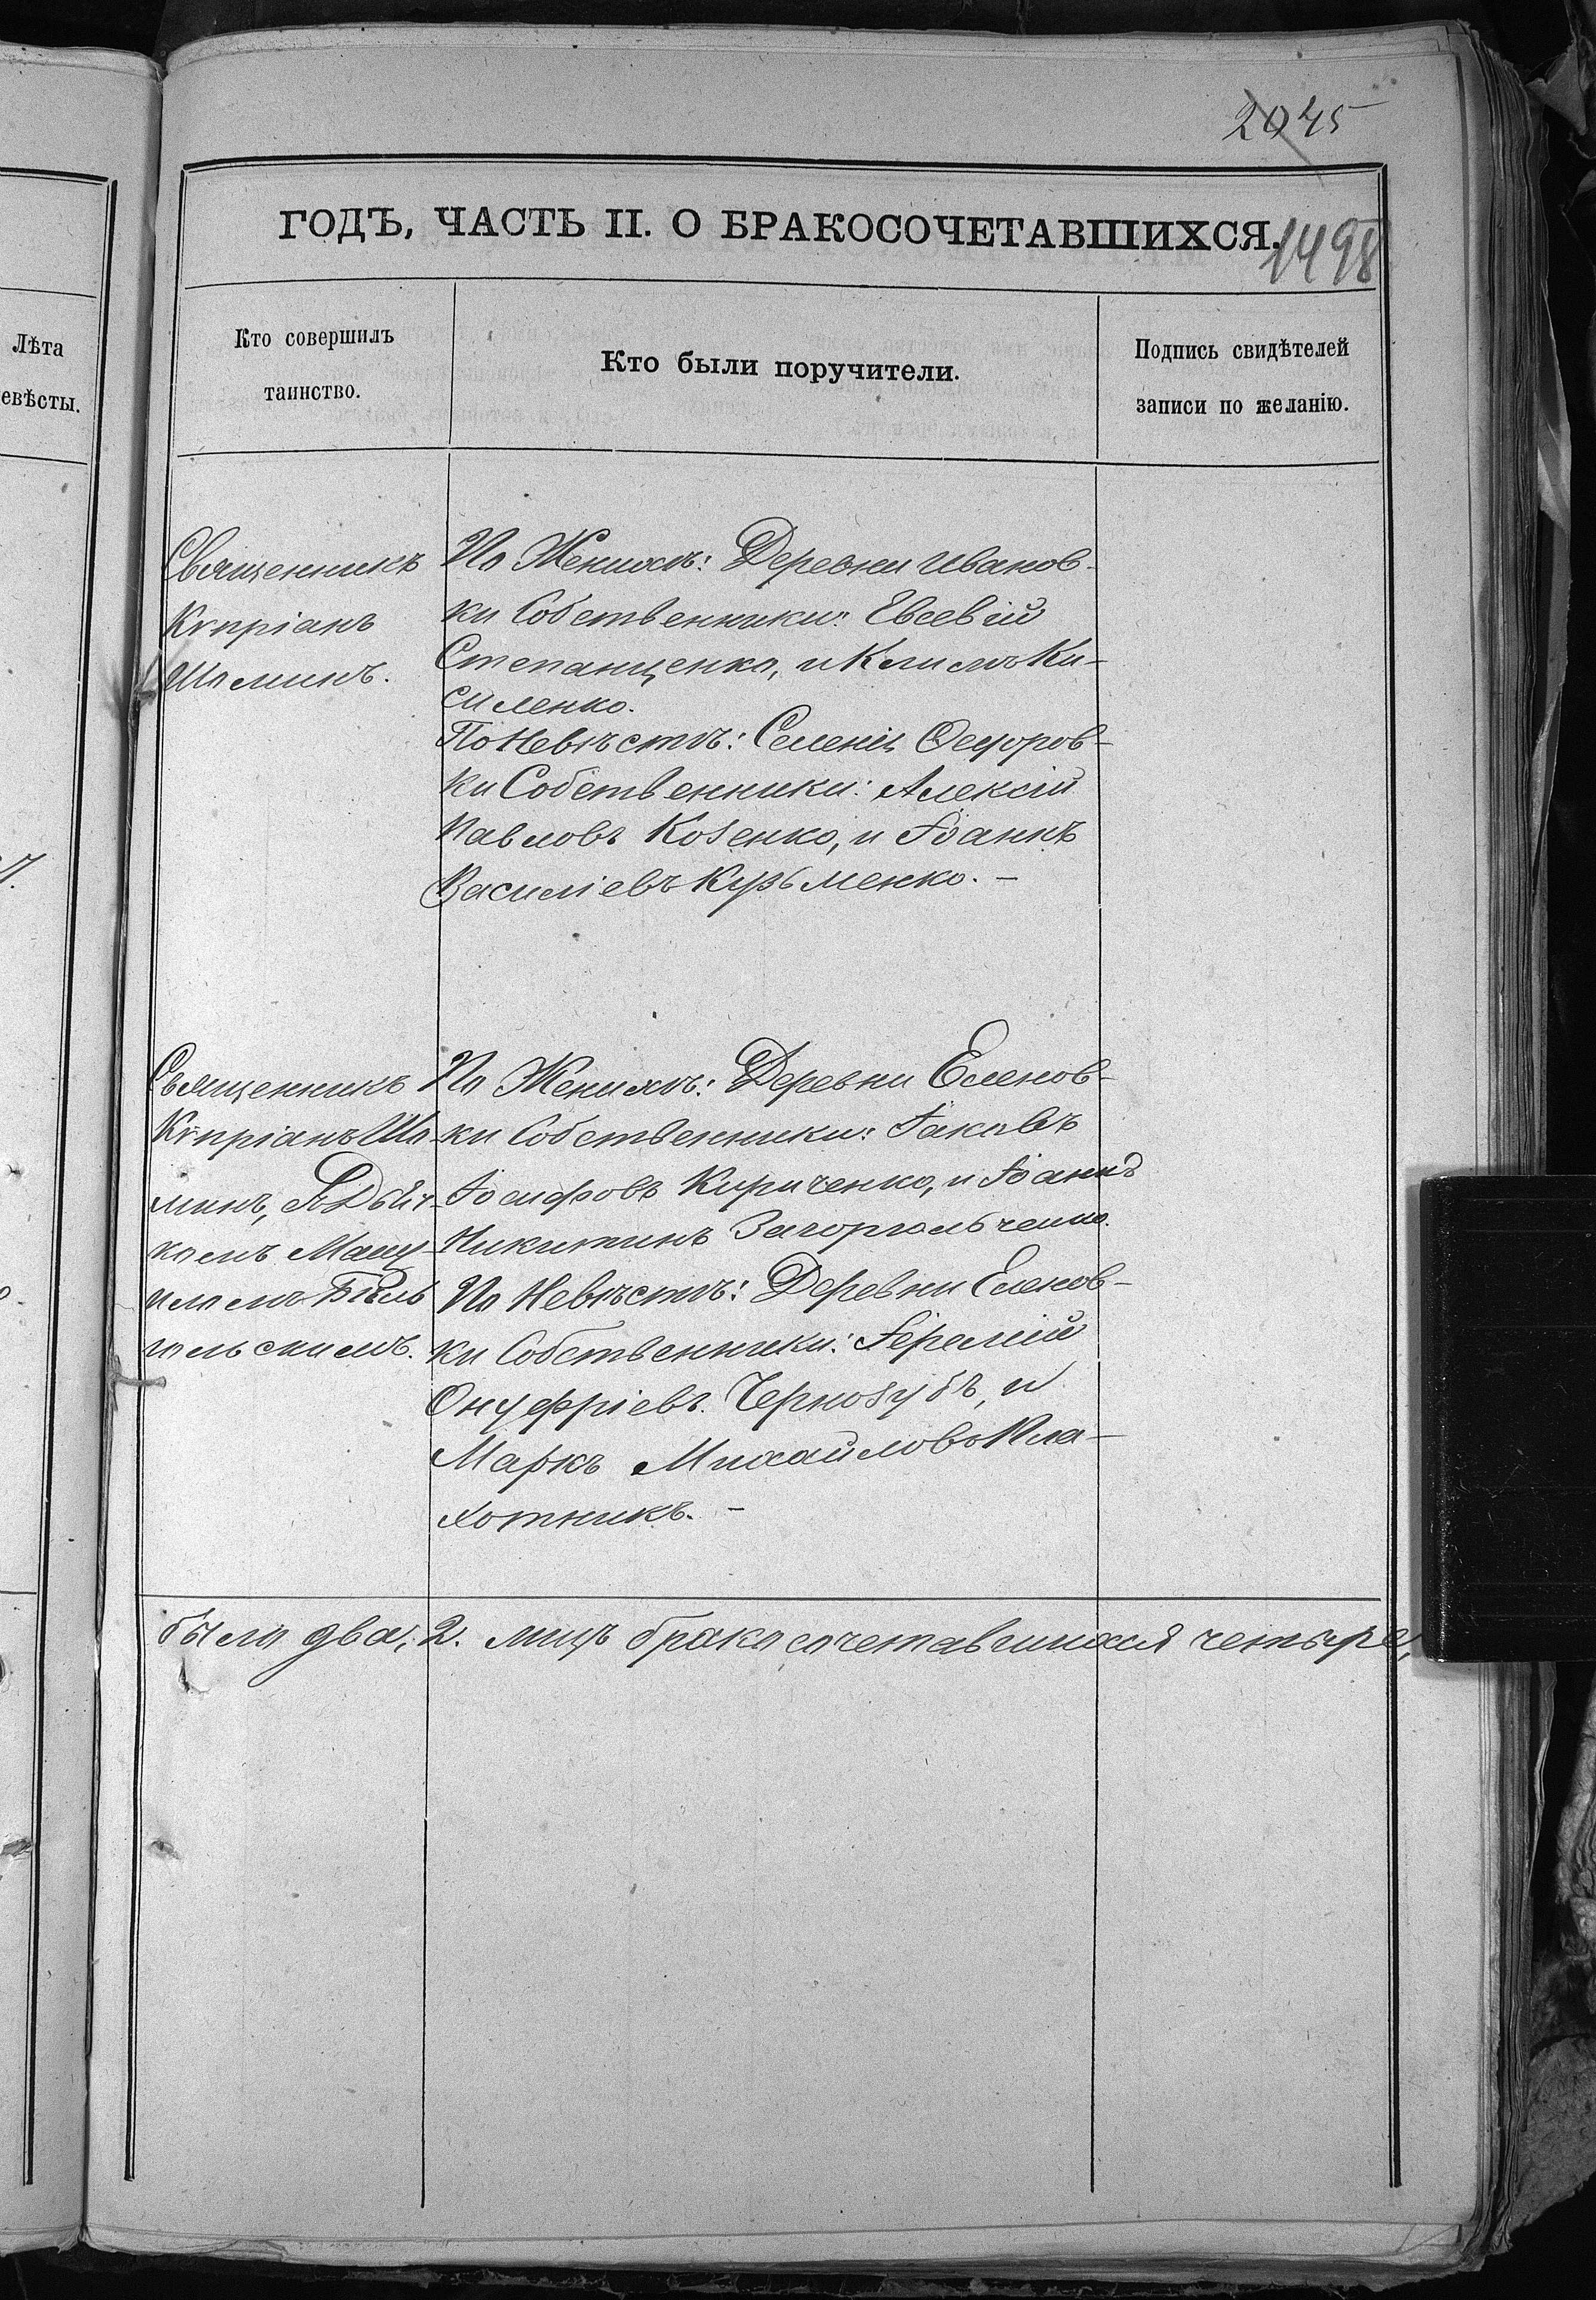 2045
ГОДЪ, ЧАСТЬ II. О БРАКОСОЧЕТАВШИХСЯ.
1498
Лѣта
евѣсты.
Кто совершилъ
таинство.
Кто были поручители.
Подпись свидѣтелей
записи по желанію.
Священникъ
Кѵпріанъ
Шоминъ.
По Женихѣ: Деревни Иванов-
ки Собственники: Евсевій
Степанценко, и Климъ Ки-
силенко.
По Невѣстѣ: Селенія Ѳедоров-
ки Собственники: Алексій
Павловъ Козенко, и Іоаннъ
Василіевъ Кузьменко. -
Священникъ
Кѵпріанъ Шо-
минъ, съ Дьяч-
комъ Ману-
иломъ Бѣль
гольскимъ.
По Женихѣ: Деревни Еленов-
ки Собственники: Іаковъ
Іосифовъ Кириченко, и Іоаннъ
Никитинъ
По Невѣстѣ: Деревни Еленов-
ки Собственники: Іеремій
Онуфріевъ Чернозубъ, и
Маркъ Михайловъ Пла-
хотникъ. -
было два, 2. лицъ бракосочетавшихся четыре,